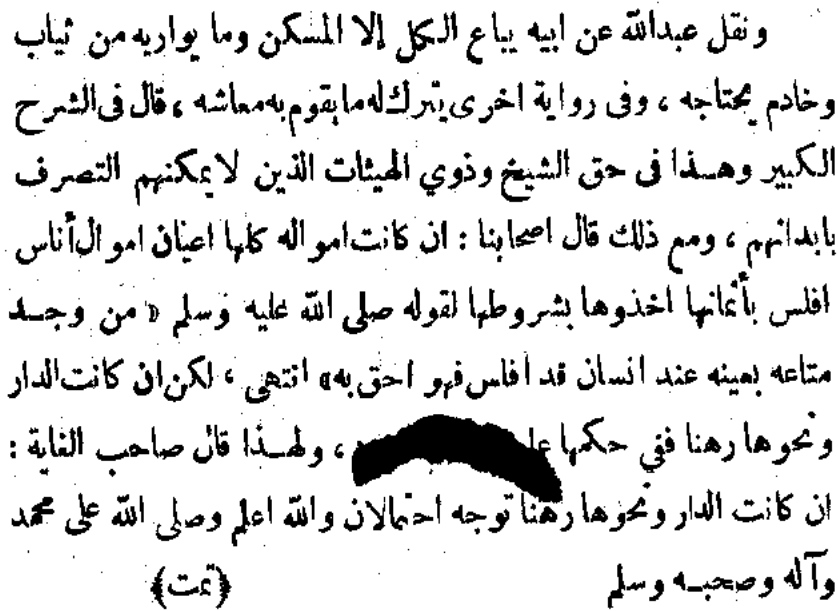 ونقل عبدالله عن ابيه يباع الكل إلا المسكن وما يواريه من ثياب
وخادم يحتاجه ، وفى رواية اخرى يترك له ما يقوم به معاشه ، قال فى الشرح
الكبير وهــذا فى حق الشيخ وذوي الهيئات الذين لا يمكنهم التصرف
بابدانهم ، ومع ذلك قال اصحابنا : ان كانت امواله كلها اعيان اموال أناس
افلس بأثمانها اخذوها بشروطها لقوله صلى الله عليه وسلم « من وجــد
متاعه بعينه عند انسان قد أفلس فهو احق به» انتهى ، لكن ان كانت الدار
ونحوها رهنا ففي حكمها ، ولهــذا قال صاحب الغاية :
ان كانت الدار ونحوها رهنا توجه احتمالان والله اعلم وصلى الله على محمد
وآله وصحبــه وسلم ﴿تمت﴾